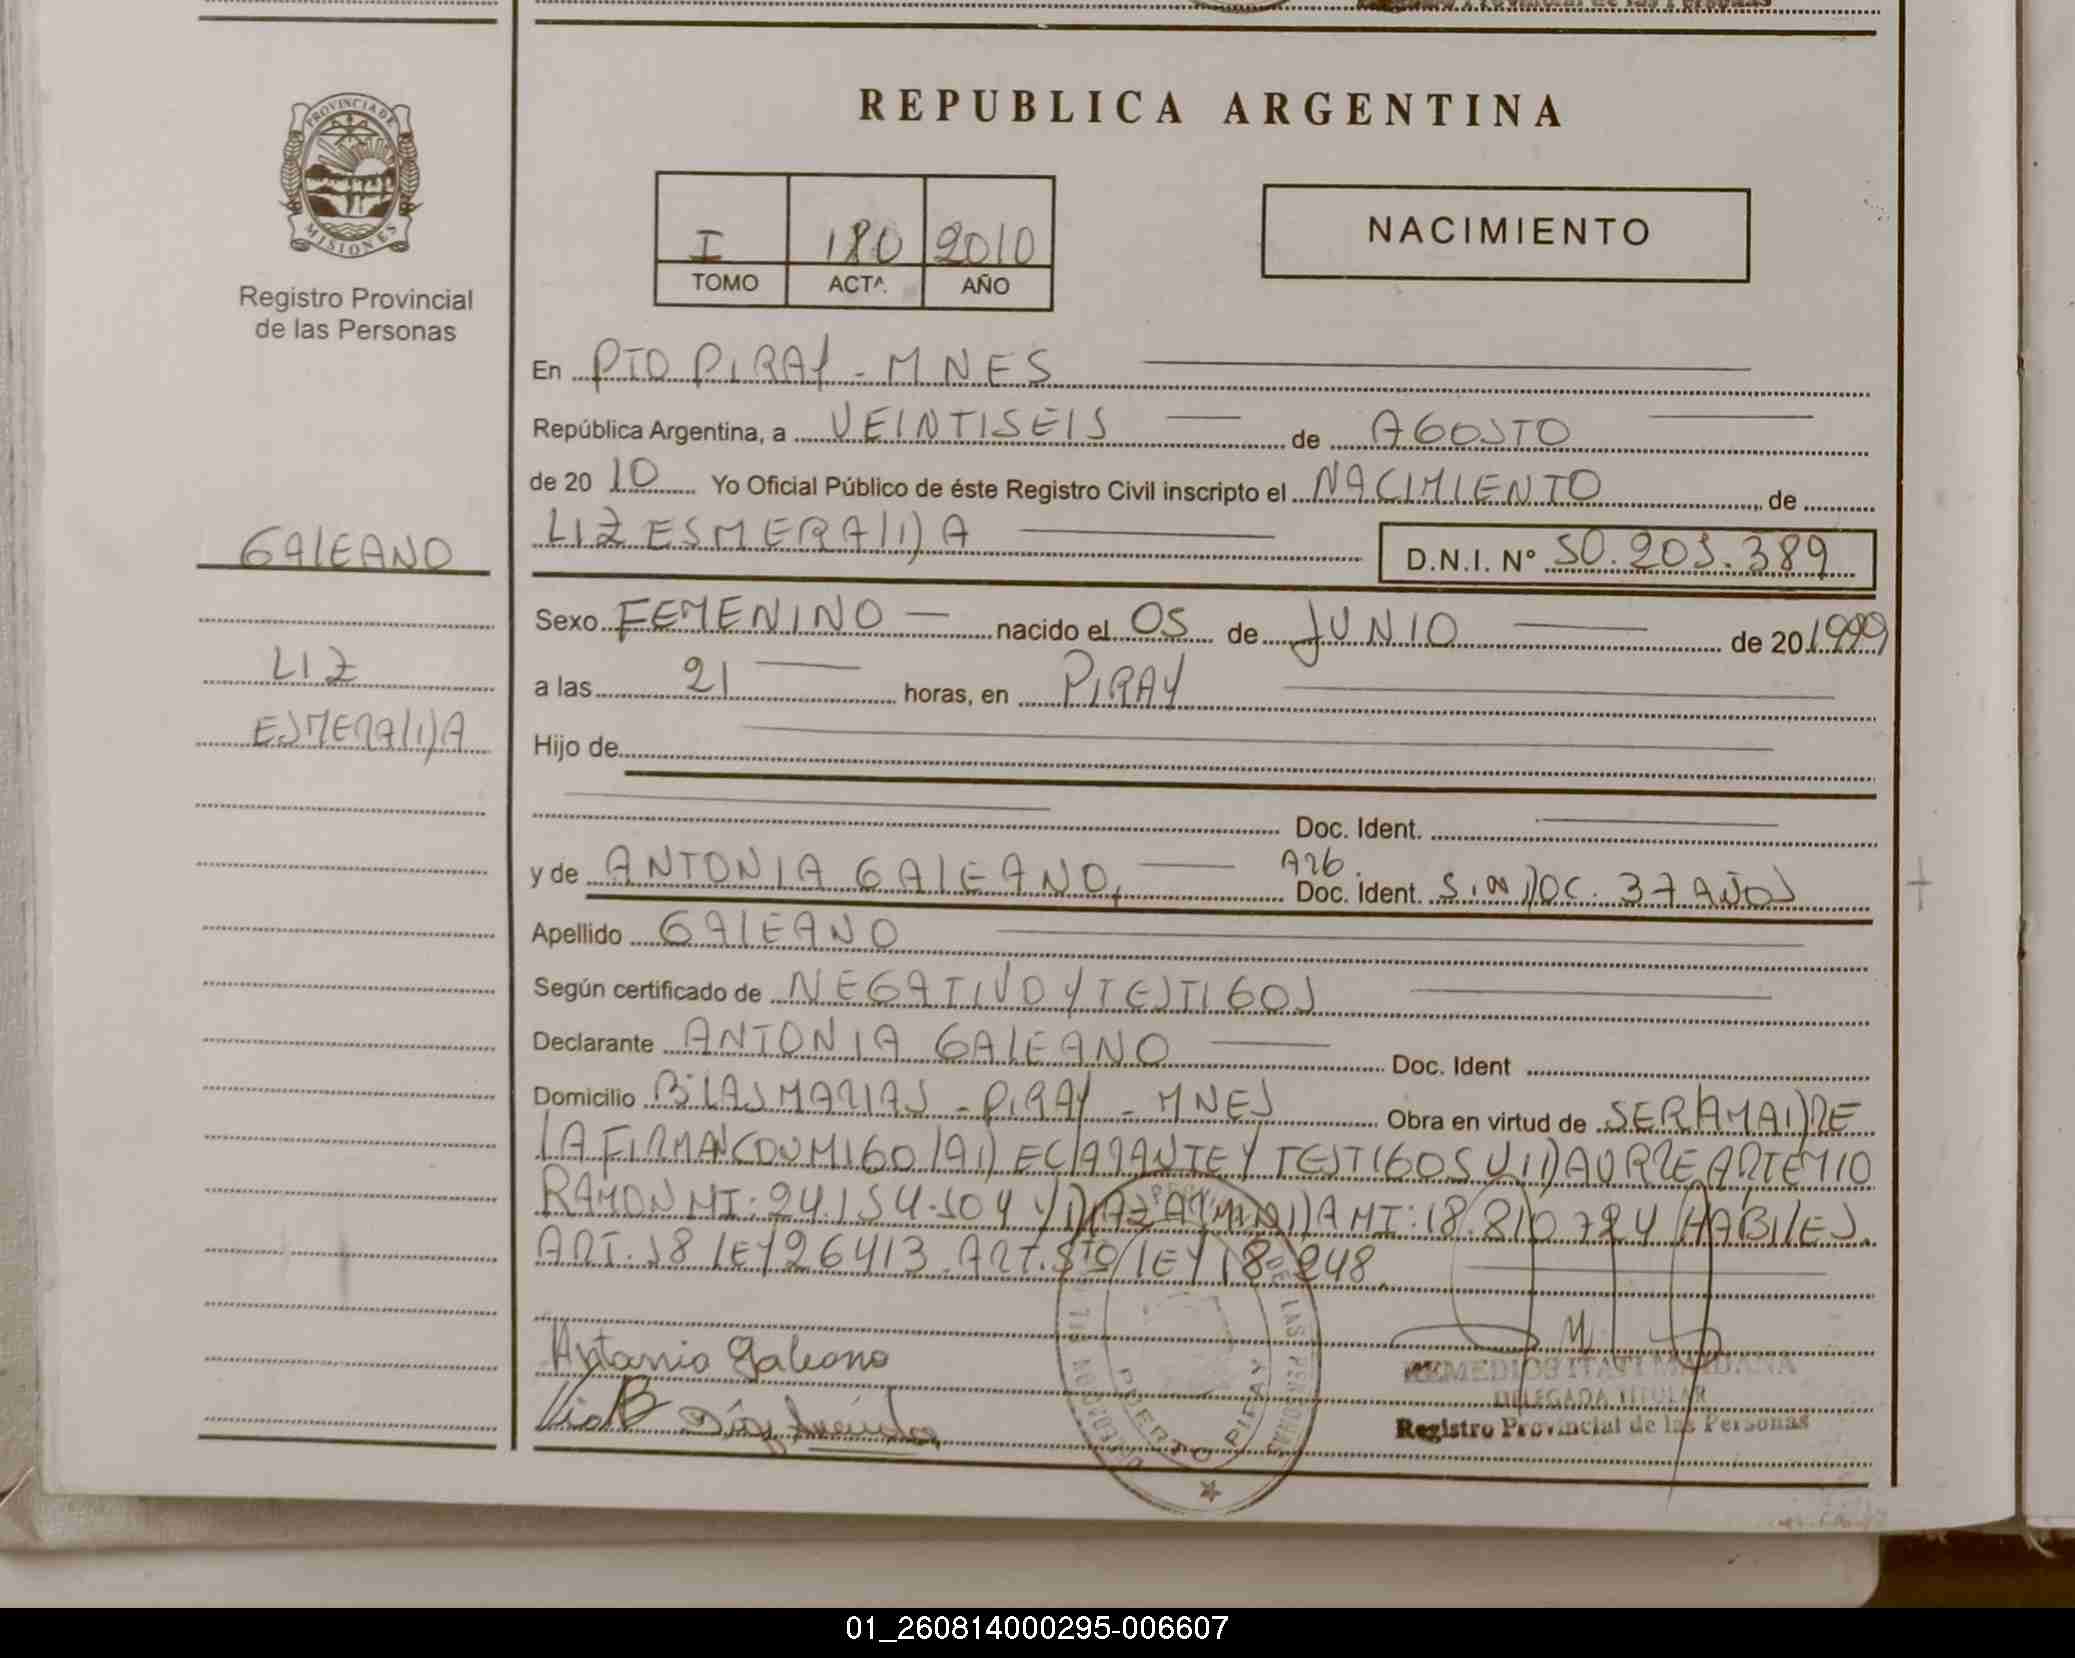 REPUBLICA ARGENTINA
PROVINCIA DE MISIONES
Registro Provincial
de las Personas
I 180 2010
TOMO ACTA AÑO
NACIMIENTO
En PTO PIRAY - MNES
República Argentina, a VEINTISEIS de AGOSTO
de 20 10 Yo Oficial Público de éste Registro Civil inscripto el NACIMIENTO de
LIZ ESMERALDA D.N.I. Nº 50.203.389
GALEANO
Sexo FEMENINO nacido el 05 de JUNIO de 20 1999
LIZ
a las 21 horas, en PIRAY
ESMERALDA
Hijo de
Doc. Ident.
y de ANTONIA GALEANO, Arg. Doc. Ident. SIN DOC. 37 AÑOS
Apellido GALEANO
Según certificado de NEGATIVO Y TESTIGOS
Declarante ANTONIA GALEANO Doc. Ident
Domicilio Bº LAS MARIAS - PIRAY - MNES Obra en virtud de SER LA MADRE
LA FIRMAN CONMIGO LA DECLARANTE Y TESTIGOS VIDAURRE ARTEMIO
RAMON MI: 24.154.504 Y DIAZ ARMINDA MI: 18.810.724 HABILES.
ART. 28 LEY 26413. ART. 5to LEY 18.248.
Antonia Galeano
Diaz Arminda
PUERTO PIRAY
DE LAS PERSONAS
REMEDIOS ITATI
DELEGADA TITULAR
Registro Provincial de las Personas
01_260814000295-006607